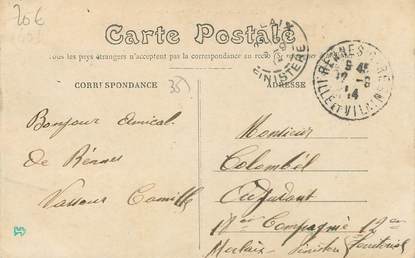 20€
Carte Postale
Tous les pays étrangers n'acceptent pas la correspondance au recto
CORRESPONDANCE
ADRESSE
35
FINISTÈRE
RENNES GARE
ILLE-ET-VILAINE
14
Bonjour amical
de Rennes
Vasseur Camille
Monsieur
Colombel
Adjudant
Compagnie
Morlaix Finistère